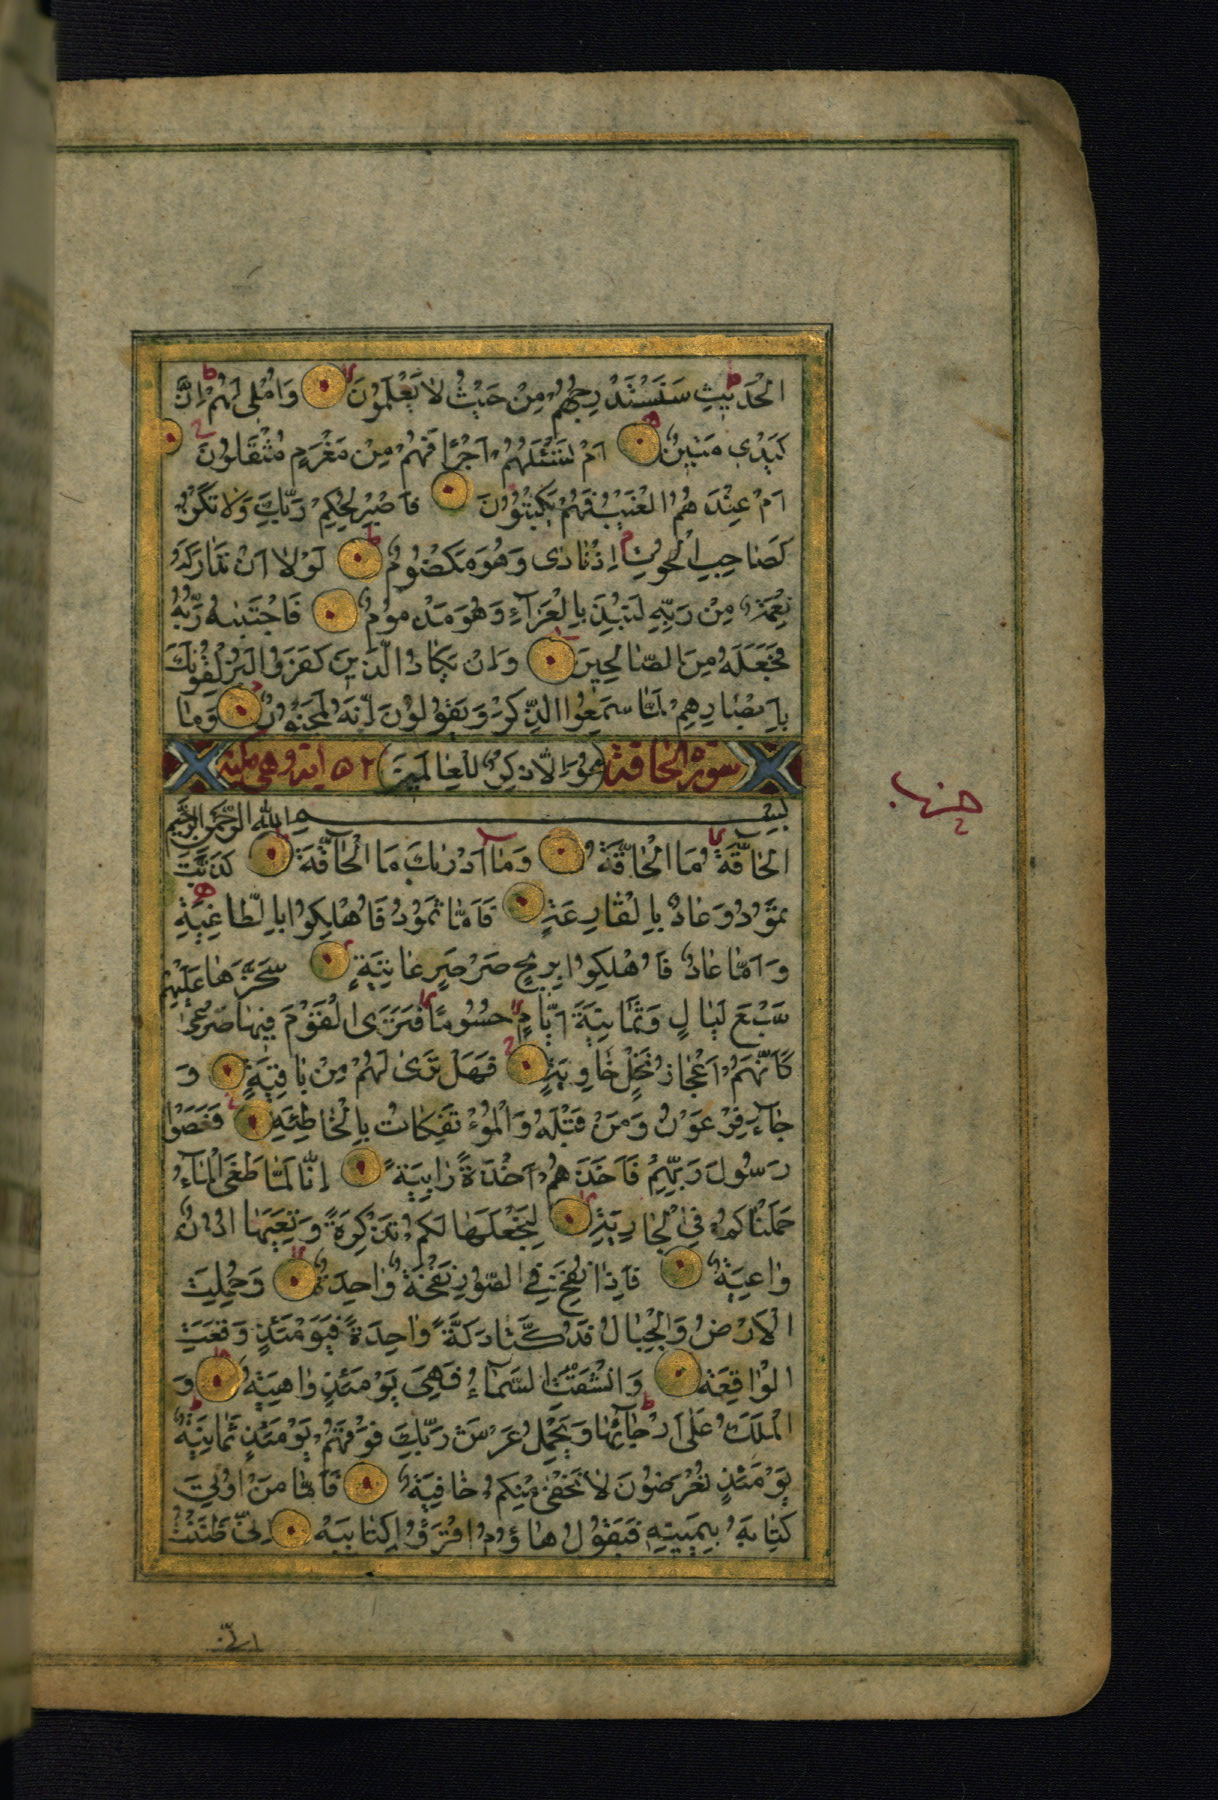 الْحَدِيثِ سَنَسْتَدْرِجُهُمْ مِنْ حَيْثُ لَا يَعْلَمُونَ وَاُمْلِي لَهُمْ اِنَّ
كَيْدِي مَتِينٌ اَمْ تَسْئَلُهُمْ اَجْرًا فَهُمْ مِنْ مَغْرَمٍ مُثْقَلُونَ
اَمْ عِنْدَهُمُ الْغَيْبُ فَهُمْ يَكْتُبُونَ فَاصْبِرْ لِحُكْمِ رَبِّكَ وَلَا تَكُنْ
كَصَاحِبِ الْحُوتِ اِذْ نَادَى وَهُوَ مَكْظُومٌ لَوْلَا اَنْ تَدَارَكَهُ
نِعْمَةٌ مِنْ رَبِّهِ لَنُبِذَ بِالْعَرَآءِ وَهُوَ مَذْمُومٌ فَاجْتَبٰيهُ رَبُّهُ
فَجَعَلَهُ مِنَ الصَّالِحِينَ وَاِنْ يَكَادُ الَّذِينَ كَفَرُوا لَيُزْلِقُونَكَ
بِاَبْصَارِهِمْ لَمَّا سَمِعُوا الذِّكْرَ وَيَقُولُونَ اِنَّهُ لَمَجْنُونٌ وَمَا
سورة الحاقة هُوَ اِلَّا ذِكْرٌ لِلْعَالَمِينَ ٥٢ اية وهي مكية
بِسْمِ اللهِ الرَّحْمٰنِ الرَّحِيمِ
اَلْحَاقَّةُ مَا الْحَاقَّةُ وَمَا اَدْرٰيكَ مَا الْحَاقَّةُ كَذَّبَتْ
ثَمُودُ وَعَادٌ بِالْقَارِعَةِ فَاَمَّا ثَمُودُ فَاُهْلِكُوا بِالطَّاغِيَةِ
وَاَمَّا عَادٌ فَاُهْلِكُوا بِرِيحٍ صَرْصَرٍ عَاتِيَةٍ سَخَّرَهَا عَلَيْهِمْ
سَبْعَ لَيَالٍ وَثَمَانِيَةَ اَيَّامٍ حُسُومًا فَتَرَى الْقَوْمَ فِيهَا صَرْعَى
كَاَنَّهُمْ اَعْجَازُ نَخْلٍ خَاوِيَةٍ فَهَلْ تَرَى لَهُمْ مِنْ بَاقِيَةٍ وَ
جَآءَ فِرْعَوْنُ وَمَنْ قَبْلَهُ وَالْمُؤْتَفِكَاتُ بِالْخَاطِئَةِ فَعَصَوْا
رَسُولَ رَبِّهِمْ فَاَخَذَهُمْ اَخْذَةً رَابِيَةً اِنَّا لَمَّا طَغَى الْمَآءُ
حَمَلْنَاكُمْ فِي الْجَارِيَةِ لِنَجْعَلَهَا لَكُمْ تَذْكِرَةً وَتَعِيَهَا اُذُنٌ
وَاعِيَةٌ فَاِذَا نُفِخَ فِي الصُّورِ نَفْخَةٌ وَاحِدَةٌ وَحُمِلَتِ
الْاَرْضُ وَالْجِبَالُ فَدُكَّتَا دَكَّةً وَاحِدَةً فَيَوْمَئِذٍ وَقَعَتِ
الْوَاقِعَةُ وَانْشَقَّتِ السَّمَآءُ فَهِيَ يَوْمَئِذٍ وَاهِيَةٌ وَ
الْمَلَكُ عَلَى اَرْجَآئِهَا وَيَحْمِلُ عَرْشَ رَبِّكَ فَوْقَهُمْ يَوْمَئِذٍ ثَمَانِيَةٌ
يَوْمَئِذٍ تُعْرَضُونَ لَا تَخْفَى مِنْكُمْ خَافِيَةٌ فَاَمَّا مَنْ اُوتِيَ
كِتَابَهُ بِيَمِينِهِ فَيَقُولُ هَاؤُمُ اقْرَؤُا كِتَابِيَهْ اِنِّي ظَنَنْتُ
انّي
حزب